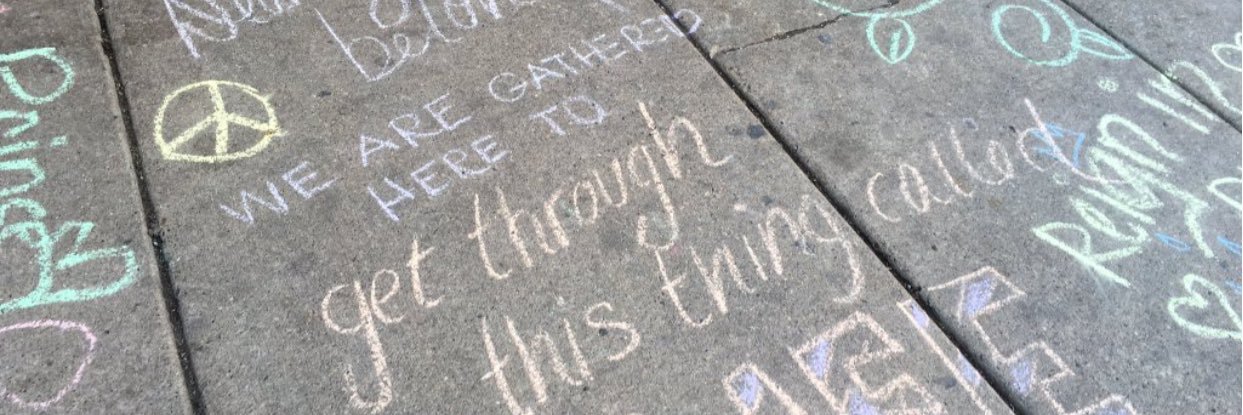 belov
WE ARE GATHERED
HERE TO
get through
this thing called
LIFE
Prince
Reign in